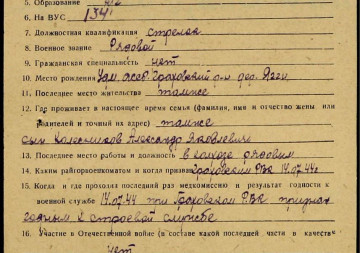 5. Образование
6. На ВУС 134
7. Должностная квалификация стрелок
8. Военное звание Рядовой
9. Гражданская специальность нет
10. Место рождения Удм. асср. Граховский р-н дер.
11. Последнее место жительства там же
12. Где проживает в настоящее время семья (фамилия, имя и отчество жены или
родителей и точный на адрес) там же
сын Колесников Александр Яковлевич
13. Последнее место работы и должность в колхозе рядовым
14. Каким райгорвоенкоматом и когда призван Граховским РВК 14.07.44г
15. Когда и где проходил последний раз медкомиссию и результат годности к
военной службе 14.07.44 при Граховском РВК признан
годным к строевой службе
16. Участие в Отечественной войне (в составе какой последней части, в качестве
нет